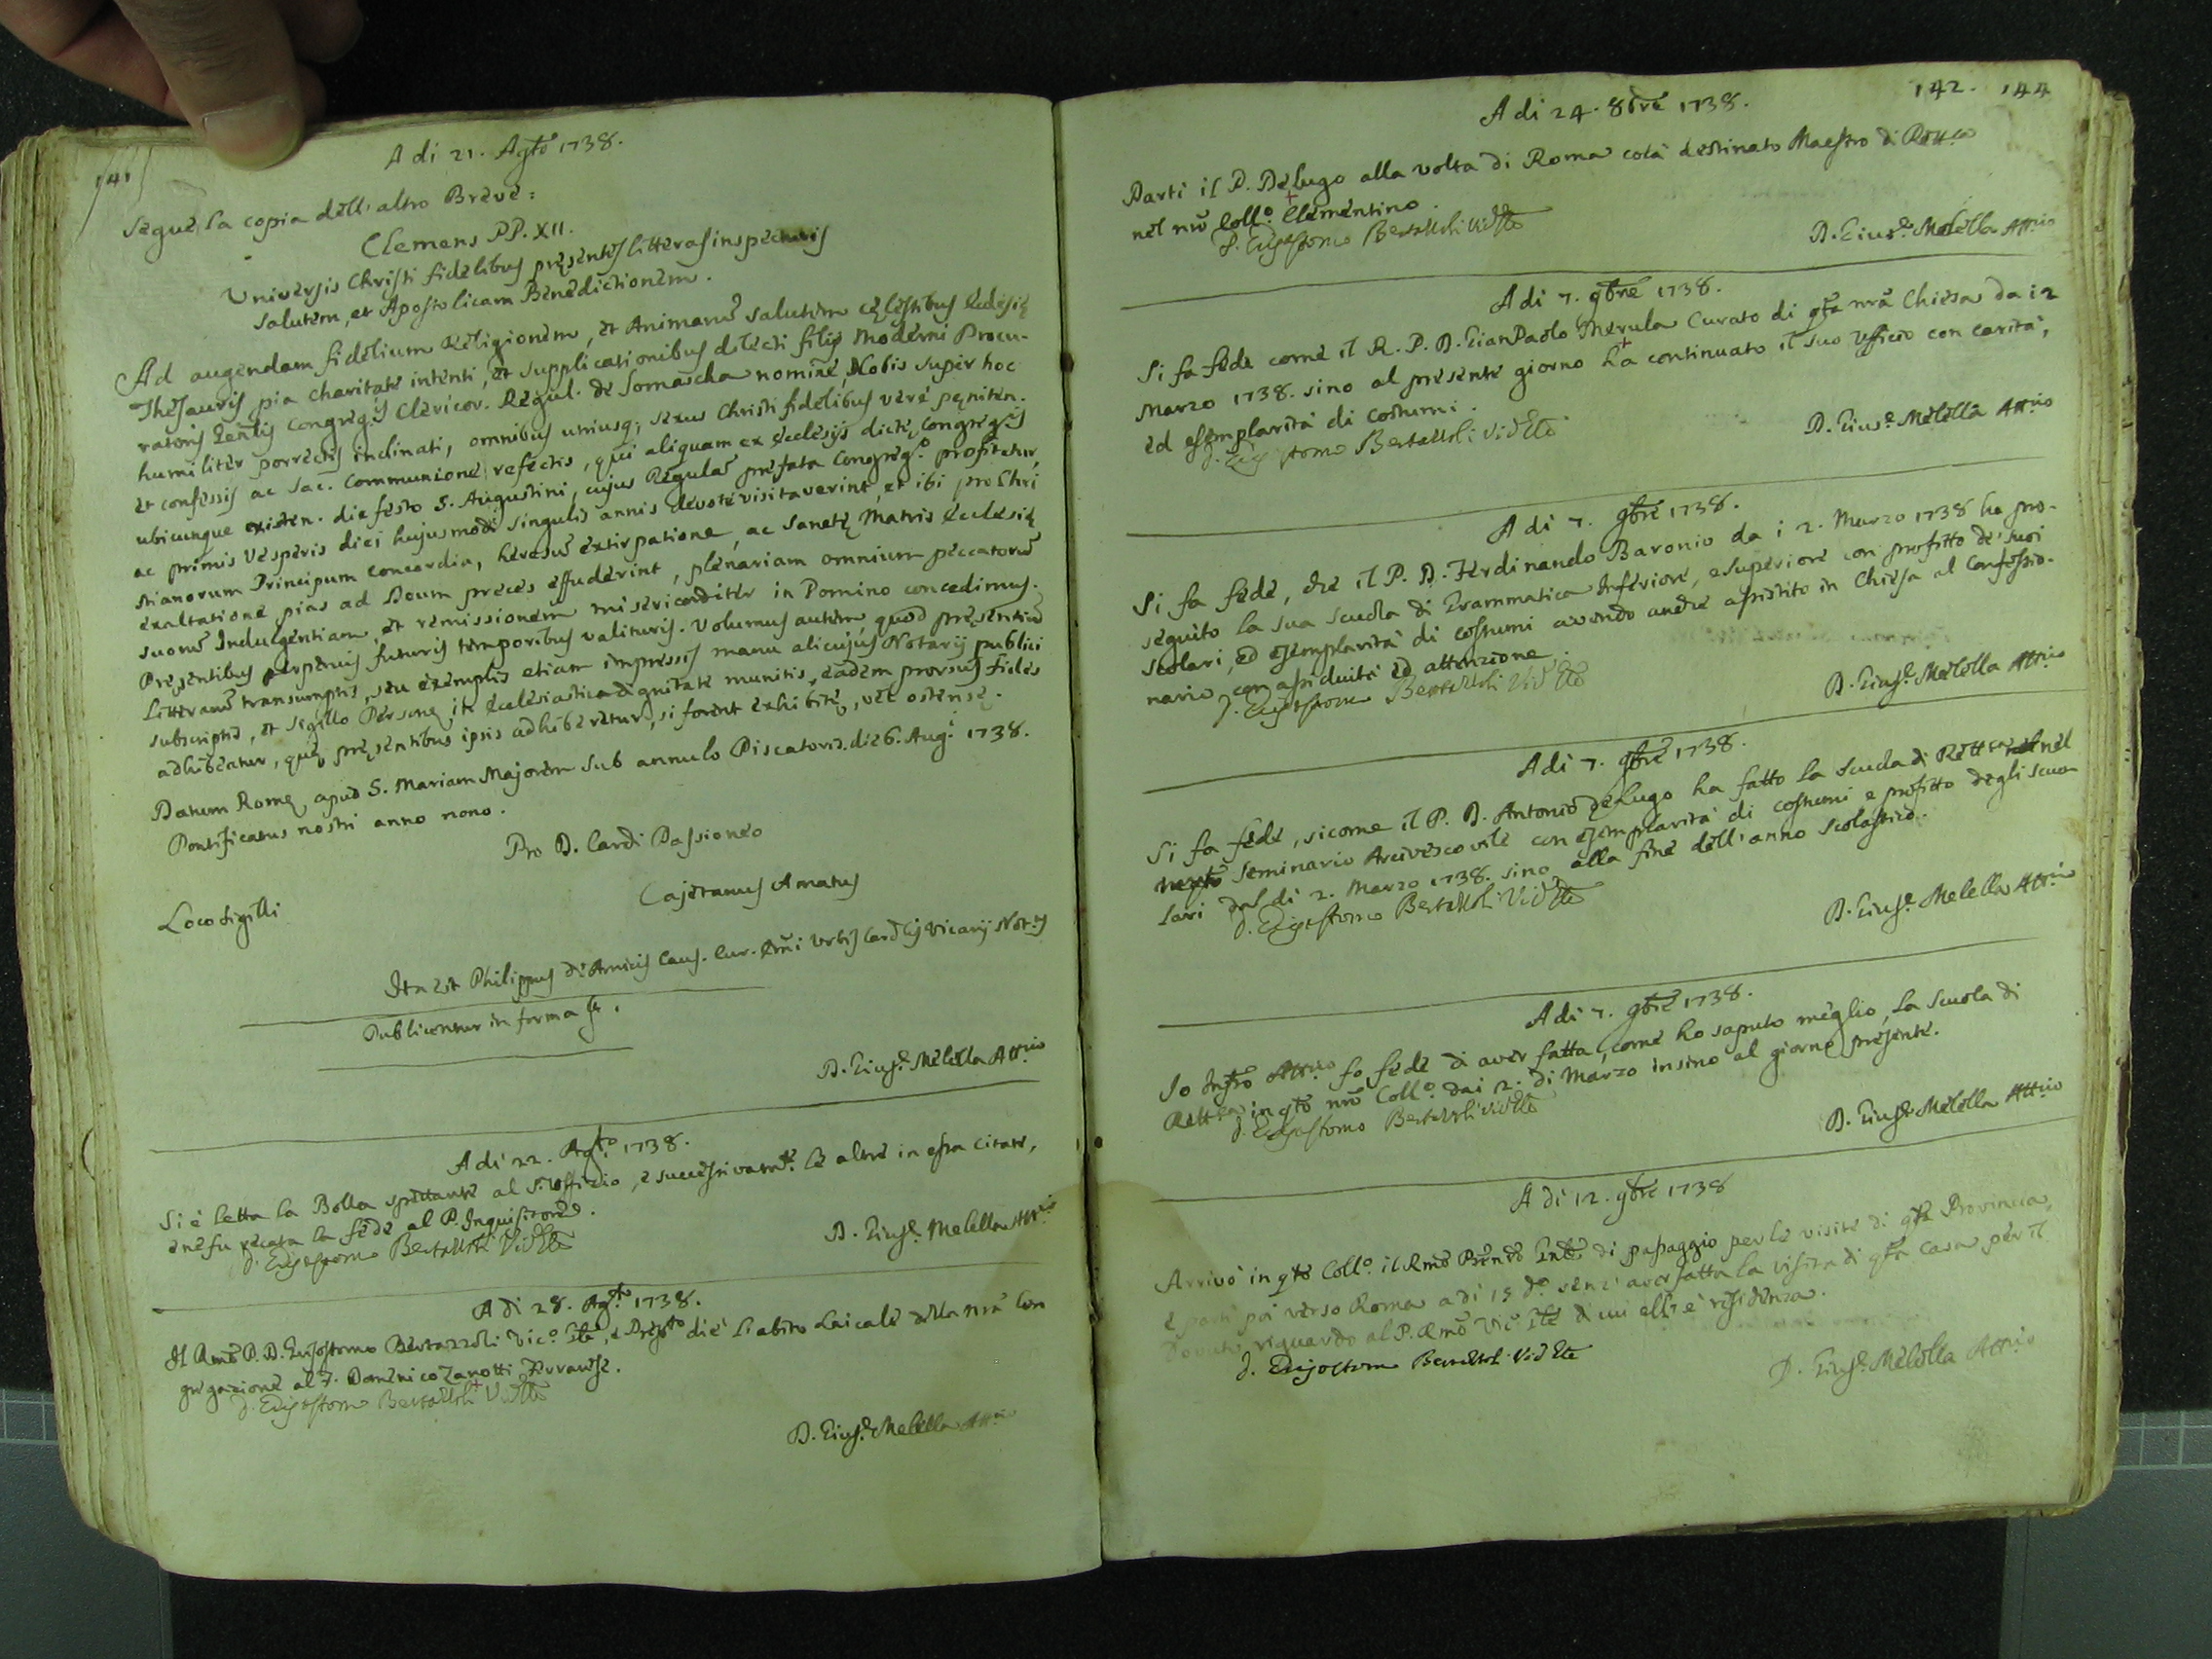 141
A di 21. Agto 1738.
Segue la copia dell'altro Breve:
Clemens PP. XII.
Universis Christi fidelibus pręsentes litteras inspecturis
salutem, et Apostolicam Benedictionem.
Ad augendam fidelium Religionem, et Animarū salutem cęlestibus Ecclesię
Thesauris pia charitate intenti, et supplicationibus dilecti filij moderni Procu-
ratoris Gentis Congregis Clericor. Regul. de Somascha nomine, Nobis super hoc
humiliter porrectis inclinati, omnibus utriusq; sexus Christi fidelibus verè pęniten.
et confessis ac Sac. Communione refectis, qui aliquam ex Ecclesijs dictę Congregis
ubicunque existen. die festo S. Augustini, cujus Regulā prefata Congrego. profitetur,
ac primis Vesperis diei hujusmodi singulis annis devote visitaverint, et ibi pro Chri
stianorum Principum concordia, heresuū extirpatione, ac Sanctę Matris Ecclesię
exaltatione pias ad Deum preces effuderint, plenariam omnium peccatorū
suorū Indulgentiam, et remissionem misericorditer in Domino concedimus.
Pręsentibus perpetuis futuris temporibus valituris. Volumus autem quod pręsentiū
litterarū transumptis, seu exemplis etiam impressis manu alicujus Notarij publici
subscriptis, et sigillo Personę in ecclesiastica dignitate munitis, eadem prorsus fides
adhibeatur, quę pręsentibus ipsis adhiberetur, si forent exhibitę, vel ostensę.
Datum Romę apud S. Mariam Majorem sub annulo Piscatoris die 6. Augi 1738.
Pontificatus nostri anno nono.
Pro D. Cardi Passioneo
Cajetanus Amatus
Loco Sigilli
Ita est Philippus de Amicis Caus. Cur. Emi Urbis Cardlis Vicarij Notus
Publicentur in forma
D. Giuse Melella Attrio
A di 22. Agto 1738.
Si è letta la Bolla spettante al S. Uffizio, e successivamte le altre in essa citate,
e ne fu recata la fede al P. Inquisitore.
D. Grisostomo Bertazzoli Vic Gte
D. Giuse Melella Attrio
A di 28. Agto 1738.
Il Rmo P. D. Grisostomo Bertazzoli Vico Gle, e Prepto diè l'abito Laicale della nrā Con
gregazione al F. Domenico Zanotti Ferrarese.
D. Grisostomo Bertazzoli Vic Gte
D. Giuse Melella Attrio
142. 144
A di 24. 8bre 1738.
Partì il P. Delugo alla volta di Roma colà destinato Maestro di Rettca
nel nrō Collo Clementino.
D. Grisostomo Bertazzoli Vic Gte
D. Giuse Melella Attrio
A di 7. 9bre 1738.
Si fa fede come il R. P. D. GianPaolo Merula Curato di qta nrā Chiesa da i 2
Marzo 1738. sino al presente giorno ha continuato il suo Uffizio con carità,
ed esemplarità di costumi.
D. Grisostomo Bertazzoli Vic Gte
D. Giuse Melella Attrio
A di 7. 9bre 1738.
Si fa fede, che il P. D. Ferdinando Baronio da i 2. Marzo 1738 ha pro-
seguito la sua scuola di Grammatica Inferiore, e superiore con profitto de' suoi
scolari, ed esemplarità di costumi avendo anche assistito in Chiesa al Confessio-
nario con assiduità ed attenzione.
D. Grisostomo Bertazzoli Vic Gte
D. Giuse Melella Attrio
A di 7. 9bre 1738.
Si fa fede, sicome il P. D. Antonio DeLugo ha fatto la scuola di Rettca nel
Seminario Arcivescovile con esemplarità di costumi e profitto degli scuo
lari dal di 2. Marzo 1738. sino alla fine dell'anno scolastico.
D. Grisostomo Bertazzoli Vic Gte
D. Giuse Melella Attrio
A di 7. 9bre 1738.
Io Infrō Attrio fo fede di aver fatta, come ho saputo meglio, la scuola di
Rettca in qto nrō Collo dai 2. di Marzo insino al giorno presente.
D. Grisostomo Bertazzoli Vic Gte
D. Giuse Melella Attrio
A di 12. 9bre 1738
Arrivò in qto Collo il Rmo Pre nrō Gnle di passaggio per le visite di qta Provincia,
e partì poi verso Roma a di 15 do senz' aver fatta la visita di qta Casa per il
dovuto riguardo al P. Rmo Vic Gle di cui ella è residenza.
D. Grisostomo Bertazzoli Vic Gte
D. Giuse Melella Attrio